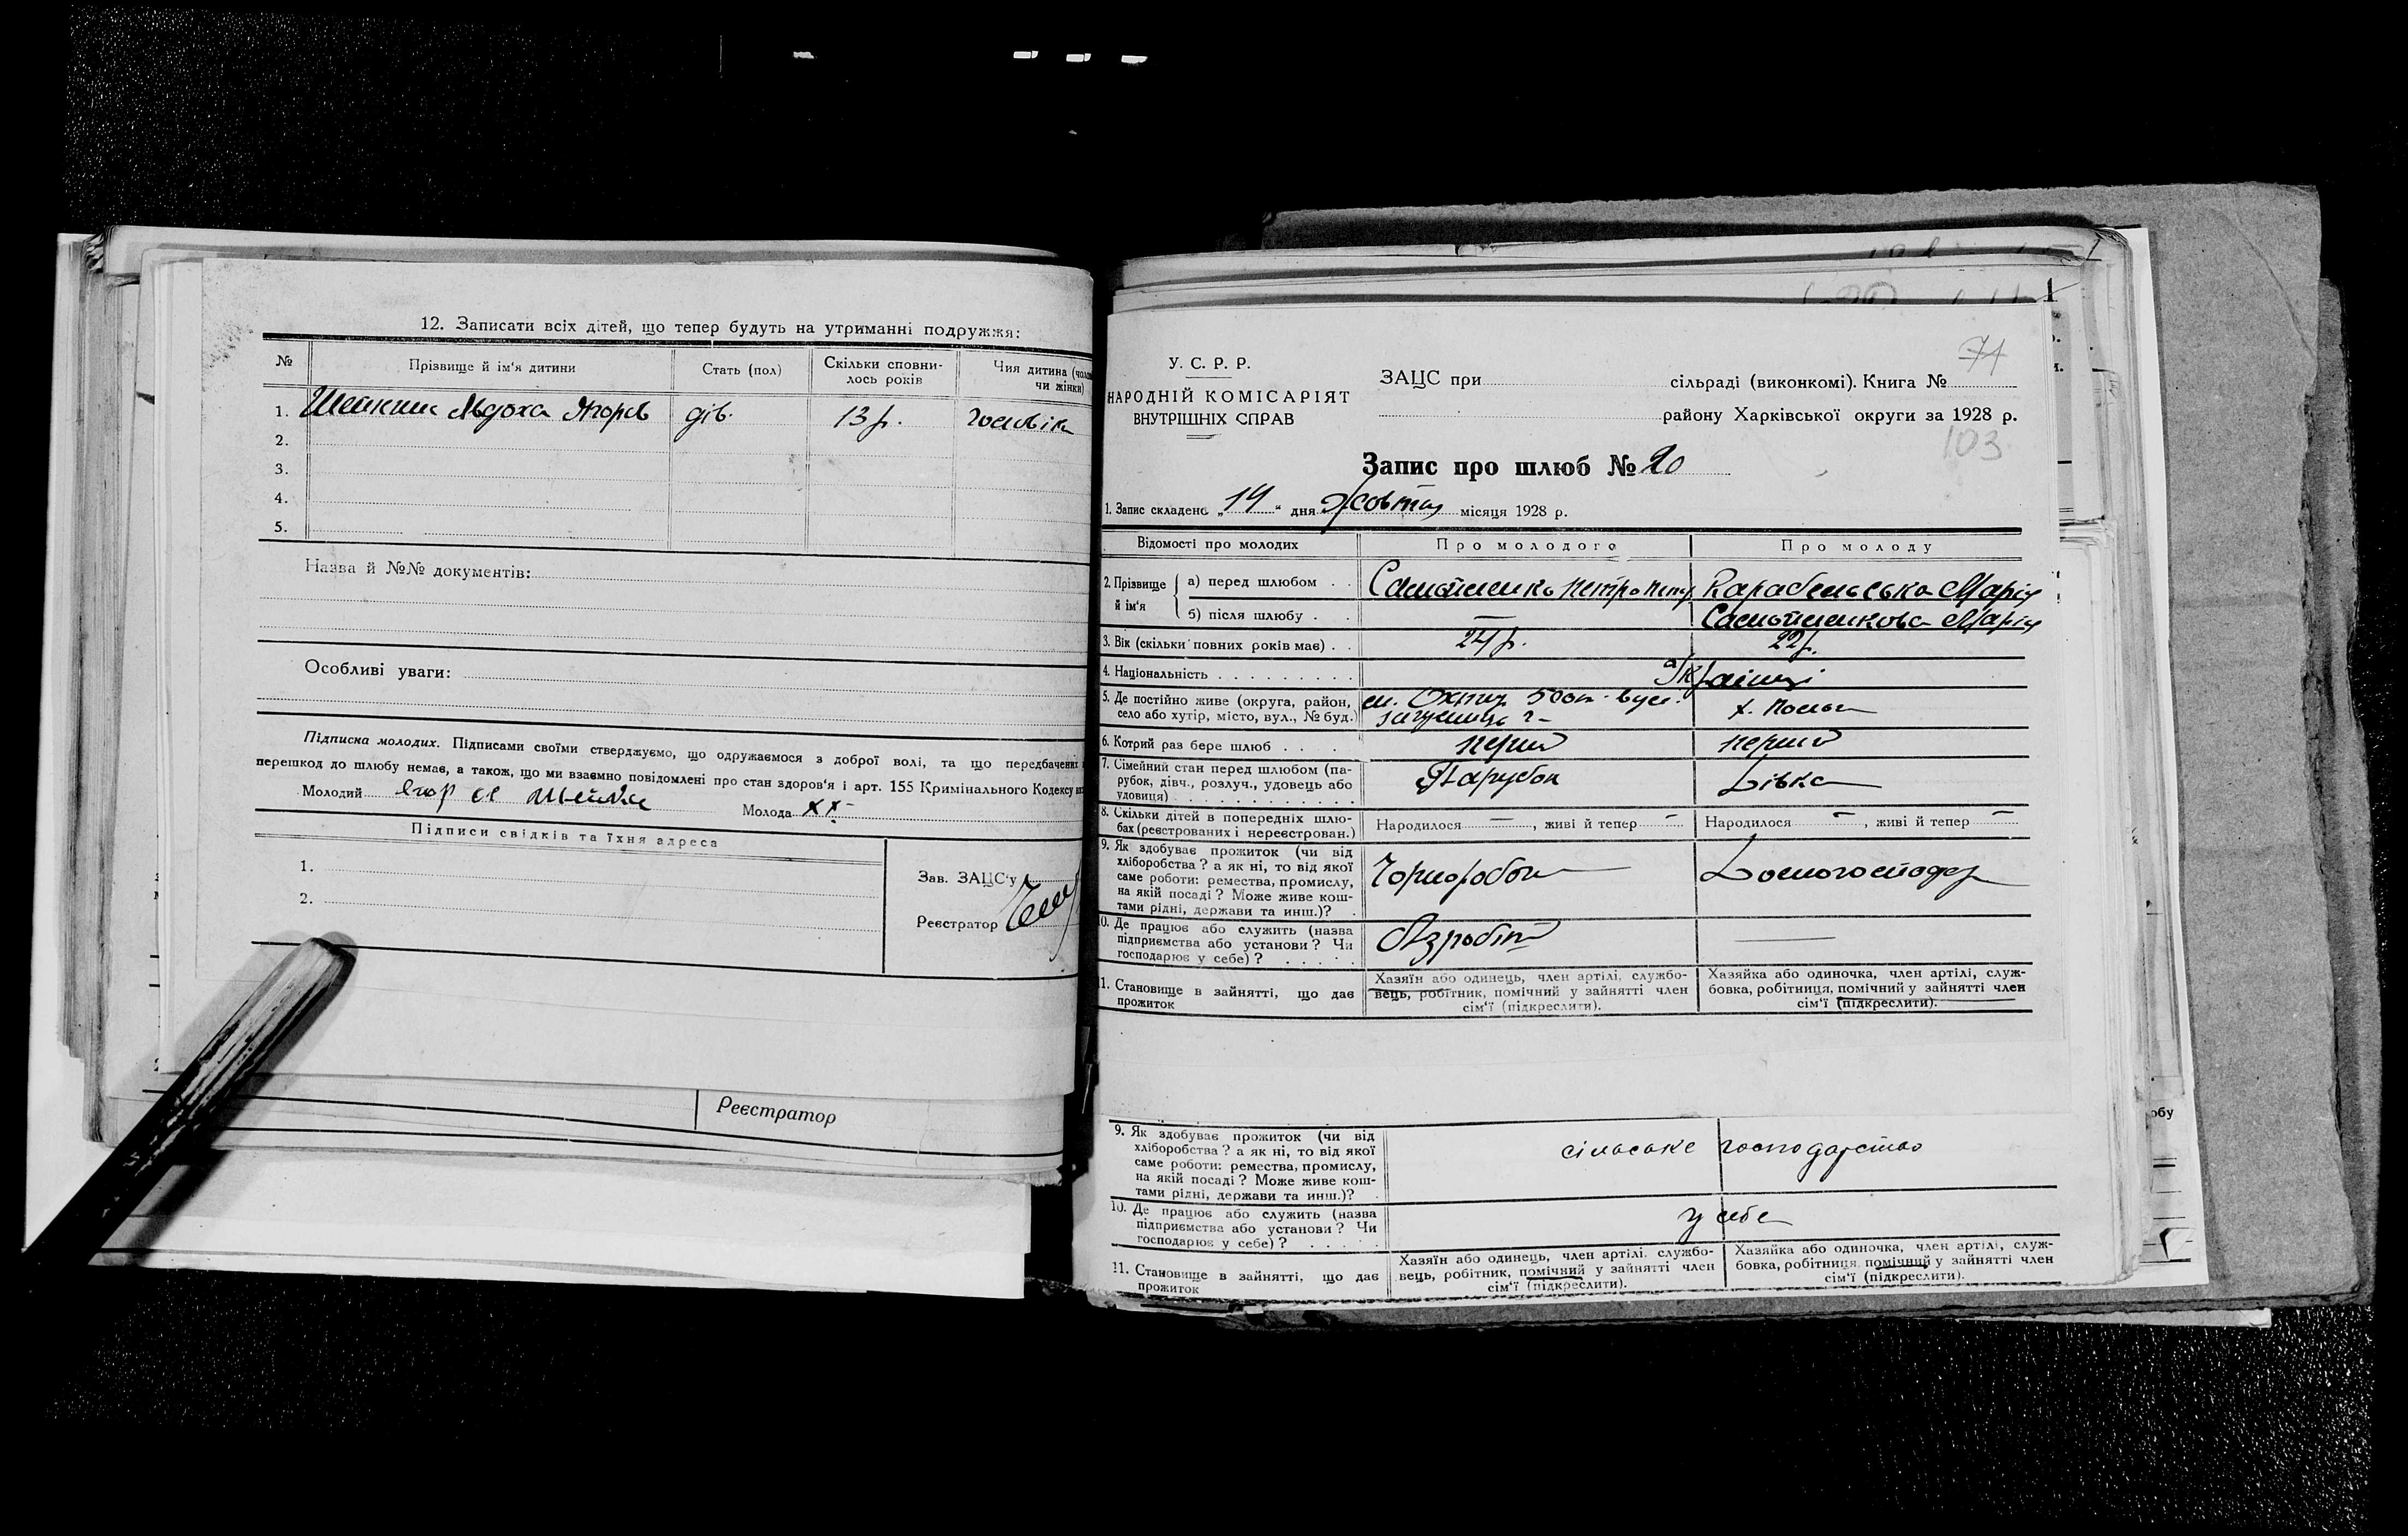 12. Записати всіх дітей, що тепер будуть на утриманні подружжя:
№ Прізвище й ім'я дитини Стать (пол) Скільки сповнилось років Чия дитина (чол чи жінки)
1. дів. 13 р.
2.
3.
4.
5.
Назва й №№ документів:
Особливі уваги:
Підписка молодих. Підписами своїми стверджуємо, що одружаємося з доброї волі, та що передбачених
перешкод до шлюбу немає, а також, що ми взаємно повідомлені про стан здоров'я і арт. 155 Кримінального Кодексу
Молодий Молода ХХ
Підписи свідків та їхня адреса
1.
2.
Зав. ЗАЦС'у
Реєстратор
Реєстратор
74
У. С. Р. Р.
НАРОДНІЙ КОМІСАРІЯТ
ВНУТРІШНІХ СПРАВ
ЗАЦС при сільраді (виконкомі). Книга №
району Харківської округи за 1928 р.
103
Запис про шлюб № 20
1. Запис складено „14“ дня місяця 1928 р.
Відомості про молодих Про молодого Про молоду
2. Прізвище й ім'я { а) перед шлюбом Петро Марія
б) після шлюбу — Марія
3. Вік (скільки повних років має) 24 р. 22 р.
4. Національність
5. Де постійно живе (округа, район,
село або хутір, місто, вул., № буд.)
6. Котрий раз бере шлюб перший перший
7. Сімейний стан перед шлюбом (па-
рубок, дівч., розлуч., удовець або
удовиця) Парубок Дівка
8. Скільки дітей в попередніх шлю-
бах (реєстрованих і нереєстрован.) Народилося —, живі й тепер — Народилося —, живі й тепер —
9. Як здобуває прожиток (чи від
хліборобства? а як ні, то від якої
саме роботи: ремества, промислу,
на якій посаді? Може живе кош-
тами рідні, держави та инш.)? Чорнороб
10. Де працює або служить (назва
підприємства або установи? Чи
господарює у себе)? —
11. Становище в зайнятті, що дає
прожиток
Хазяїн або одинець, член артілі, службо-
вець, робітник, помічний у зайнятті член
сім'ї (підкреслити).
Хазяйка або одиночка, член артілі, служ-
бовка, робітниця, помічний у зайнятті член
сім'ї (підкреслити).
9. Як здобуває прожиток (чи від
хліборобства? а як ні, то від якої
саме роботи: ремества, промислу,
на якій посаді? Може живе кош-
тами рідні, держави та инш.)? сільське господарство
10. Де працює або служить (назва
підприємства або установи? Чи
господарює у себе)? у себе
11. Становище в зайнятті, що дає
прожиток
Хазяїн або одинець, член артілі, службо-
вець, робітник, помічний у зайнятті член
сім'ї (підкреслити).
Хазяйка або одиночка, член артілі, служ-
бовка, робітниця, помічний у зайнятті член
сім'ї (підкреслити).